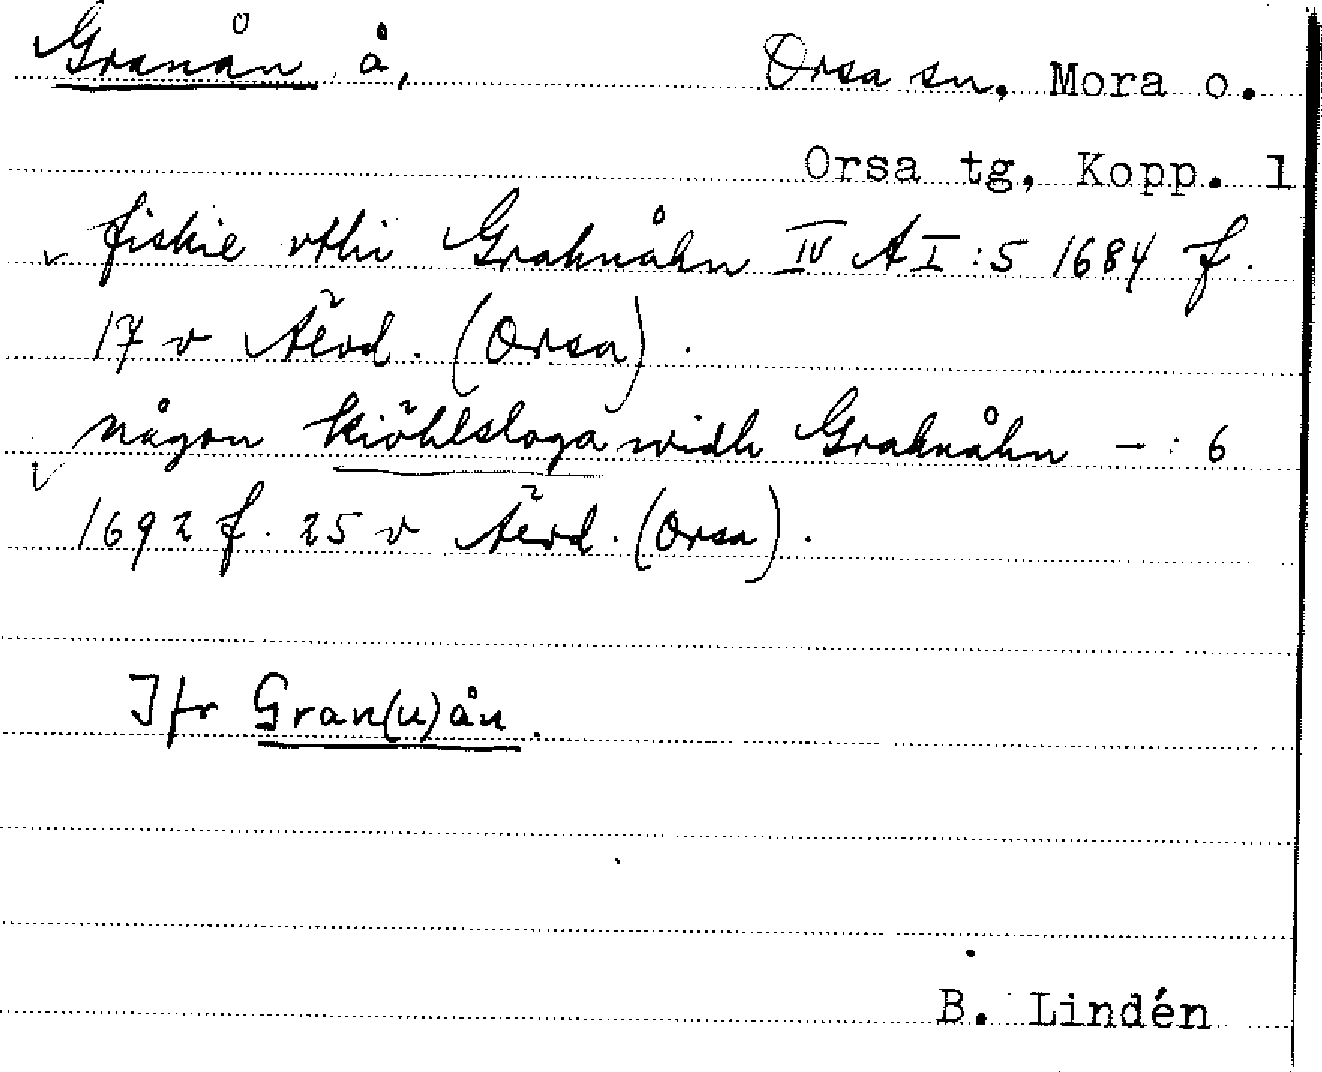 Granån å, Orsa sn, Mora o.
Orsa tg, Kopp. l
fiskie vthi Grahnåhn IV A I:5 1684 f.
17 v Älvd. (Orsa).
någon kiöhlsloga widh Grahnåhn - : 6
1692 f. 25 v Älvd. (Orsa).
Jfr Gran(u)ån.
B. Lindén